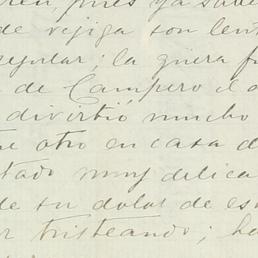 pues ya sabe
de vejiga son lent
regular; la güera f
de Campero el
divirtió mucho
otro en casa d
tado muy delica
de su dolor de es
tristeando; ha